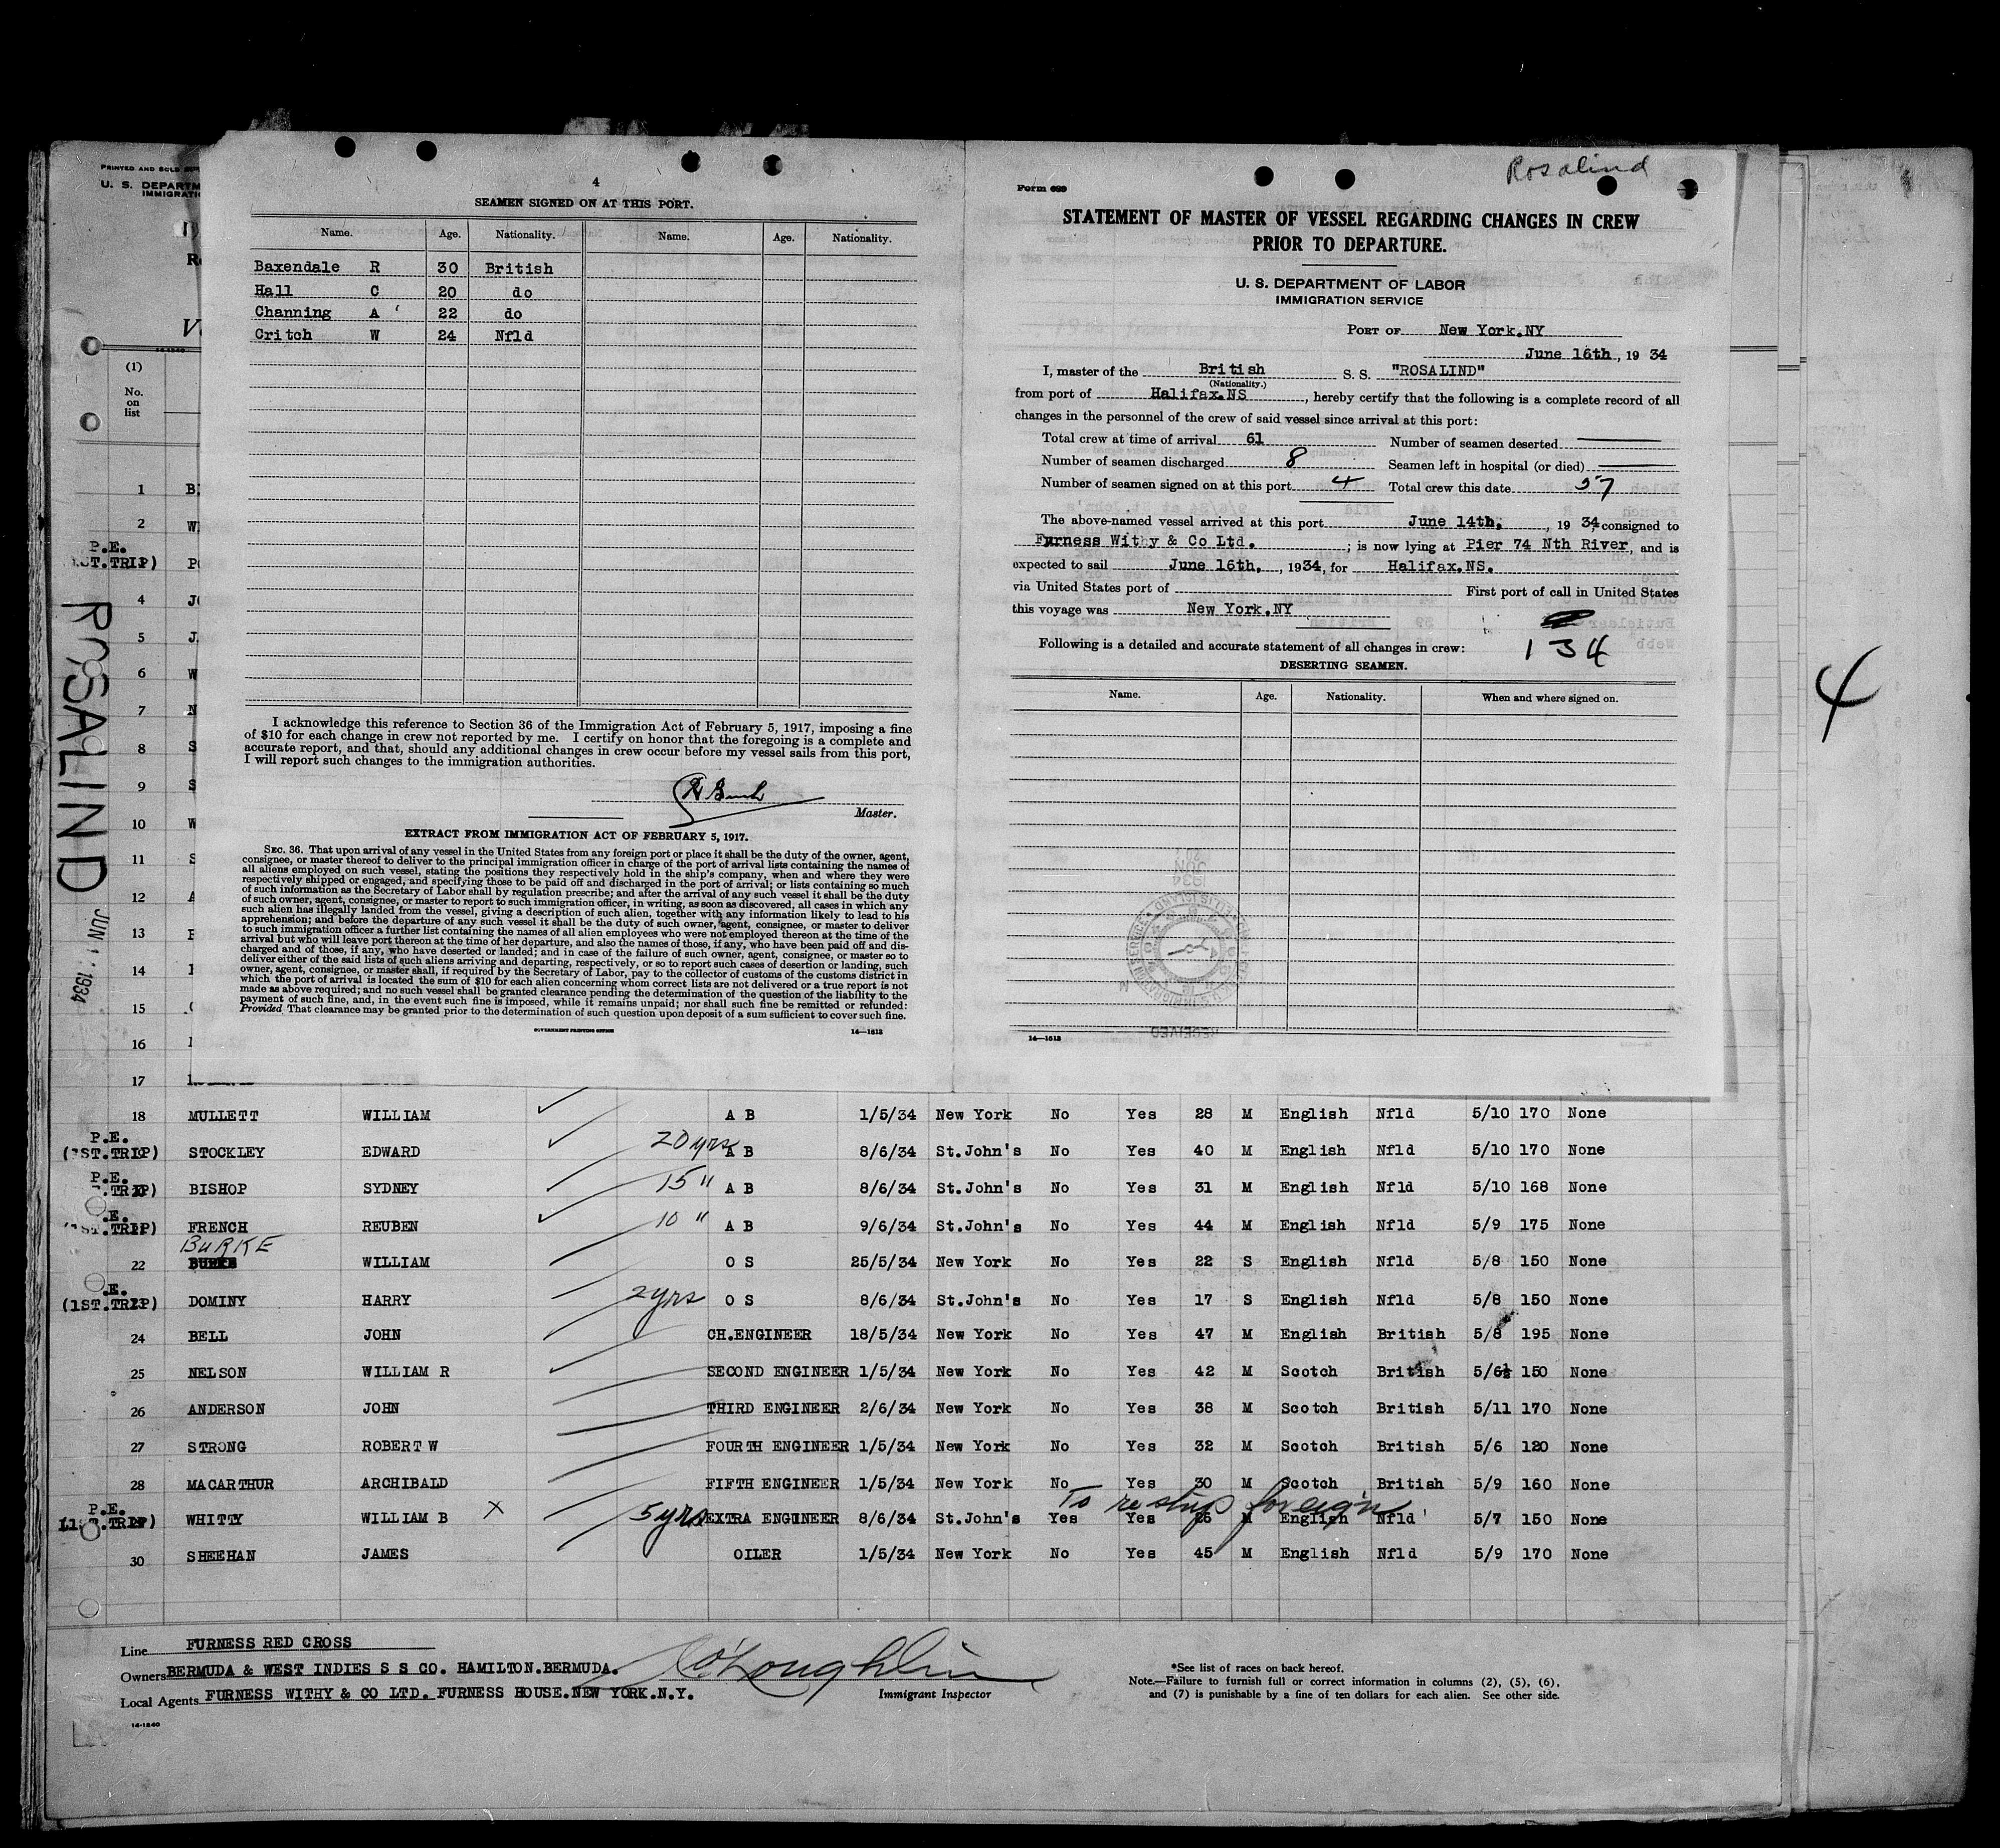 4
SEAMEN SIGNED ON AT THIS PORT.
Name. Age. Nationality. Name. Age. Nationality.
Baxendale R 30 British
Hall C 20 do
Channing A 22 do
Critch W 24 Nfld
I acknowledge this reference to Section 36 of the Immigration Act of February 5, 1917, imposing a fine
of $10 for each change in crew not reported by me. I certify on honor that the foregoing is a complete and
accurate report, and that, should any additional changes in crew occur before my vessel sails from this port,
I will report such changes to the immigration authorities.
Master.
EXTRACT FROM IMMIGRATION ACT OF FEBRUARY 5, 1917.
SEC. 36. That upon arrival of any vessel in the United States from any foreign port or place it shall be the duty of the owner, agent,
consignee, or master thereof to deliver to the principal immigration officer in charge of the port of arrival lists containing the names of
all aliens employed on such vessel, stating the positions they respectively hold in the ship's company, when and where they were
respectively shipped or engaged, and specifying those to be paid off and discharged in the port of arrival; or lists containing so much
of such information as the Secretary of Labor shall by regulation prescribe; and after the arrival of any such vessel it shall be the duty
of such owner, agent, consignee, or master to report to such immigration officer, in writing, as soon as discovered, all cases in which any
such alien has illegally landed from the vessel, giving a description of such alien, together with any information likely to lead to his
apprehension; and before the departure of any such vessel it shall be the duty of such owner, agent, consignee, or master to deliver
to such immigration officer a further list containing the names of all alien employees who were not employed thereon at the time of the
arrival but who will leave port thereon at the time of her departure, and also the names of those, if any, who have been paid off and dis-
charged and of those, if any, who have deserted or landed; and in case of the failure of such owner, agent, consignee, or master so to
deliver either of the said lists of such aliens arriving and departing, respectively, or so to report such cases of desertion or landing, such
owner, agent, consignee, or master shall, if required by the Secretary of Labor, pay to the collector of customs of the customs district in
which the port of arrival is located the sum of $10 for each alien concerning whom correct lists are not delivered or a true report is not
made as above required; and no such vessel shall be granted clearance pending the determination of the question of the liability to the
payment of such fine, and, in the event such fine is imposed, while it remains unpaid; nor shall such fine be remitted or refunded:
Provided That clearance may be granted prior to the determination of such question upon deposit of a sum sufficient to cover such fine.
GOVERNMENT PRINTING OFFICE 14—1613
Rosalind
Form 689
STATEMENT OF MASTER OF VESSEL REGARDING CHANGES IN CREW
PRIOR TO DEPARTURE.
U. S. DEPARTMENT OF LABOR
IMMIGRATION SERVICE
PORT OF New York.NY
June 16th, 19 34
I, master of the British S. S. "ROSALIND"
(Nationality.)
from port of Halifax.NS, hereby certify that the following is a complete record of all
changes in the personnel of the crew of said vessel since arrival at this port:
Total crew at time of arrival 61 Number of seamen deserted
Number of seamen discharged 8 Seamen left in hospital (or died)
Number of seamen signed on at this port 4 Total crew this date 57
The above-named vessel arrived at this port June 14th., 19 34, consigned to
Furness Withy & Co Ltd.; is now lying at Pier 74 Nth River, and is
expected to sail June 16th., 1934, for Halifax.NS.
via United States port of First port of call in United States
this voyage was New York.NY
134
Following is a detailed and accurate statement of all changes in crew:
DESERTING SEAMEN.
Name. Age. Nationality. When and where signed on.
14—1613
4
PRINTED AND SOLD
U. S. DEPARTM
IMMIGRATI
(1)
No.
on
list
ROSALIND
JUN 1 1934
1 B
2 W
P.E.
4 J
5 J
6 W
7 N
8 S
9 S
10 W
11 S
12 A
13
14
15
16
17
18 MULLETT WILLIAM A B 1/5/34 New York No Yes 28 M English Nfld 5/10 170 None
P.E. (1ST.TRIP) STOCKLEY EDWARD 20 yrs A B 8/6/34 St.John's No Yes 40 M English Nfld 5/10 170 None
P.E. TRIP) BISHOP SYDNEY 15 " A B 8/6/34 St.John's No Yes 31 M English Nfld 5/10 168 None
.E. (1ST.TRIP) FRENCH REUBEN 10 " A B 9/6/34 St.John's No Yes 44 M English Nfld 5/9 175 None
BURKE
22 BURKE WILLIAM O S 25/5/34 New York No Yes 22 S English Nfld 5/8 150 None
.E. (1ST.TRIP) DOMINY HARRY 2yrs O S 8/6/34 St.John's No Yes 17 S English Nfld 5/8 150 None
24 BELL JOHN CH.ENGINEER 18/5/34 New York No Yes 47 M English British 5/8 195 None
25 NELSON WILLIAM R SECOND ENGINEER 1/5/34 New York No Yes 42 M Scotch British 5/6½ 150 None
26 ANDERSON JOHN THIRD ENGINEER 2/6/34 New York No Yes 38 M Scotch British 5/11 170 None
27 STRONG ROBERT W FOURTH ENGINEER 1/5/34 New York No Yes 32 M Scotch British 5/6 120 None
28 MACARTHUR ARCHIBALD FIFTH ENGINEER 1/5/34 New York No Yes 30 M Scotch British 5/9 160 None
To reship foreign
P.E. TRIP) WHITTY WILLIAM B X 5yrs EXTRA ENGINEER 8/6/34 St.John's Yes Yes M English Nfld 5/7 150 None
30 SHEEHAN JAMES OILER 1/5/34 New York No Yes 45 M English Nfld 5/9 170 None
Line FURNESS RED CROSS
Owners BERMUDA & WEST INDIES S S CO. HAMILTON.BERMUDA.
Local Agents FURNESS WITHY & CO LTD. FURNESS HOUSE.NEW YORK.N.Y.
14-1240
O'Loughlin
Immigrant Inspector
*See list of races on back hereof.
Note.—Failure to furnish full or correct information in columns (2), (5), (6),
and (7) is punishable by a fine of ten dollars for each alien. See other side.